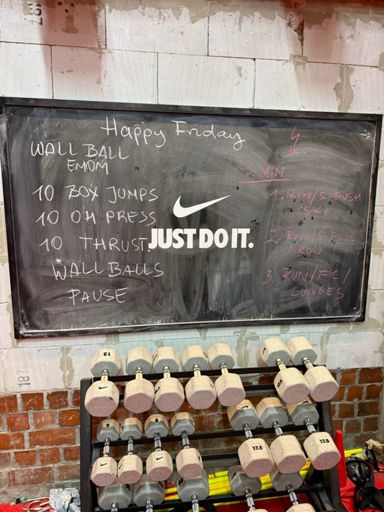 Happy Friday
WALL BALL
EMOM
10 BOX JUMPS
10 OH. PRESS
10 THRUST
WALL BALLS
PAUSE
JUST DO IT.
MIN
1. RUN/S. PUSH
/SKI
2. RUN/S. PULL
/ROW
3. RUN/FC/
LUNGES
187
187
15
17.5
17.5